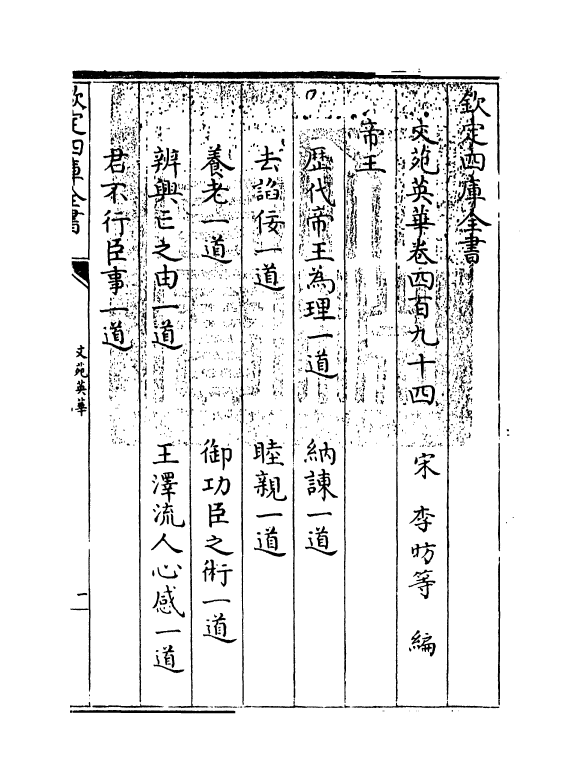 欽定四庫全書
文苑英華卷四百九十四
宋 李昉等 編
帝王
歴代帝王為理一道 納諫一道
去諂佞一道 睦親一道
養老一道 御功臣之術一道
辨興亡之由一道 王澤流人心感一道
君不行臣事一道
欽定四庫全書
文苑英華